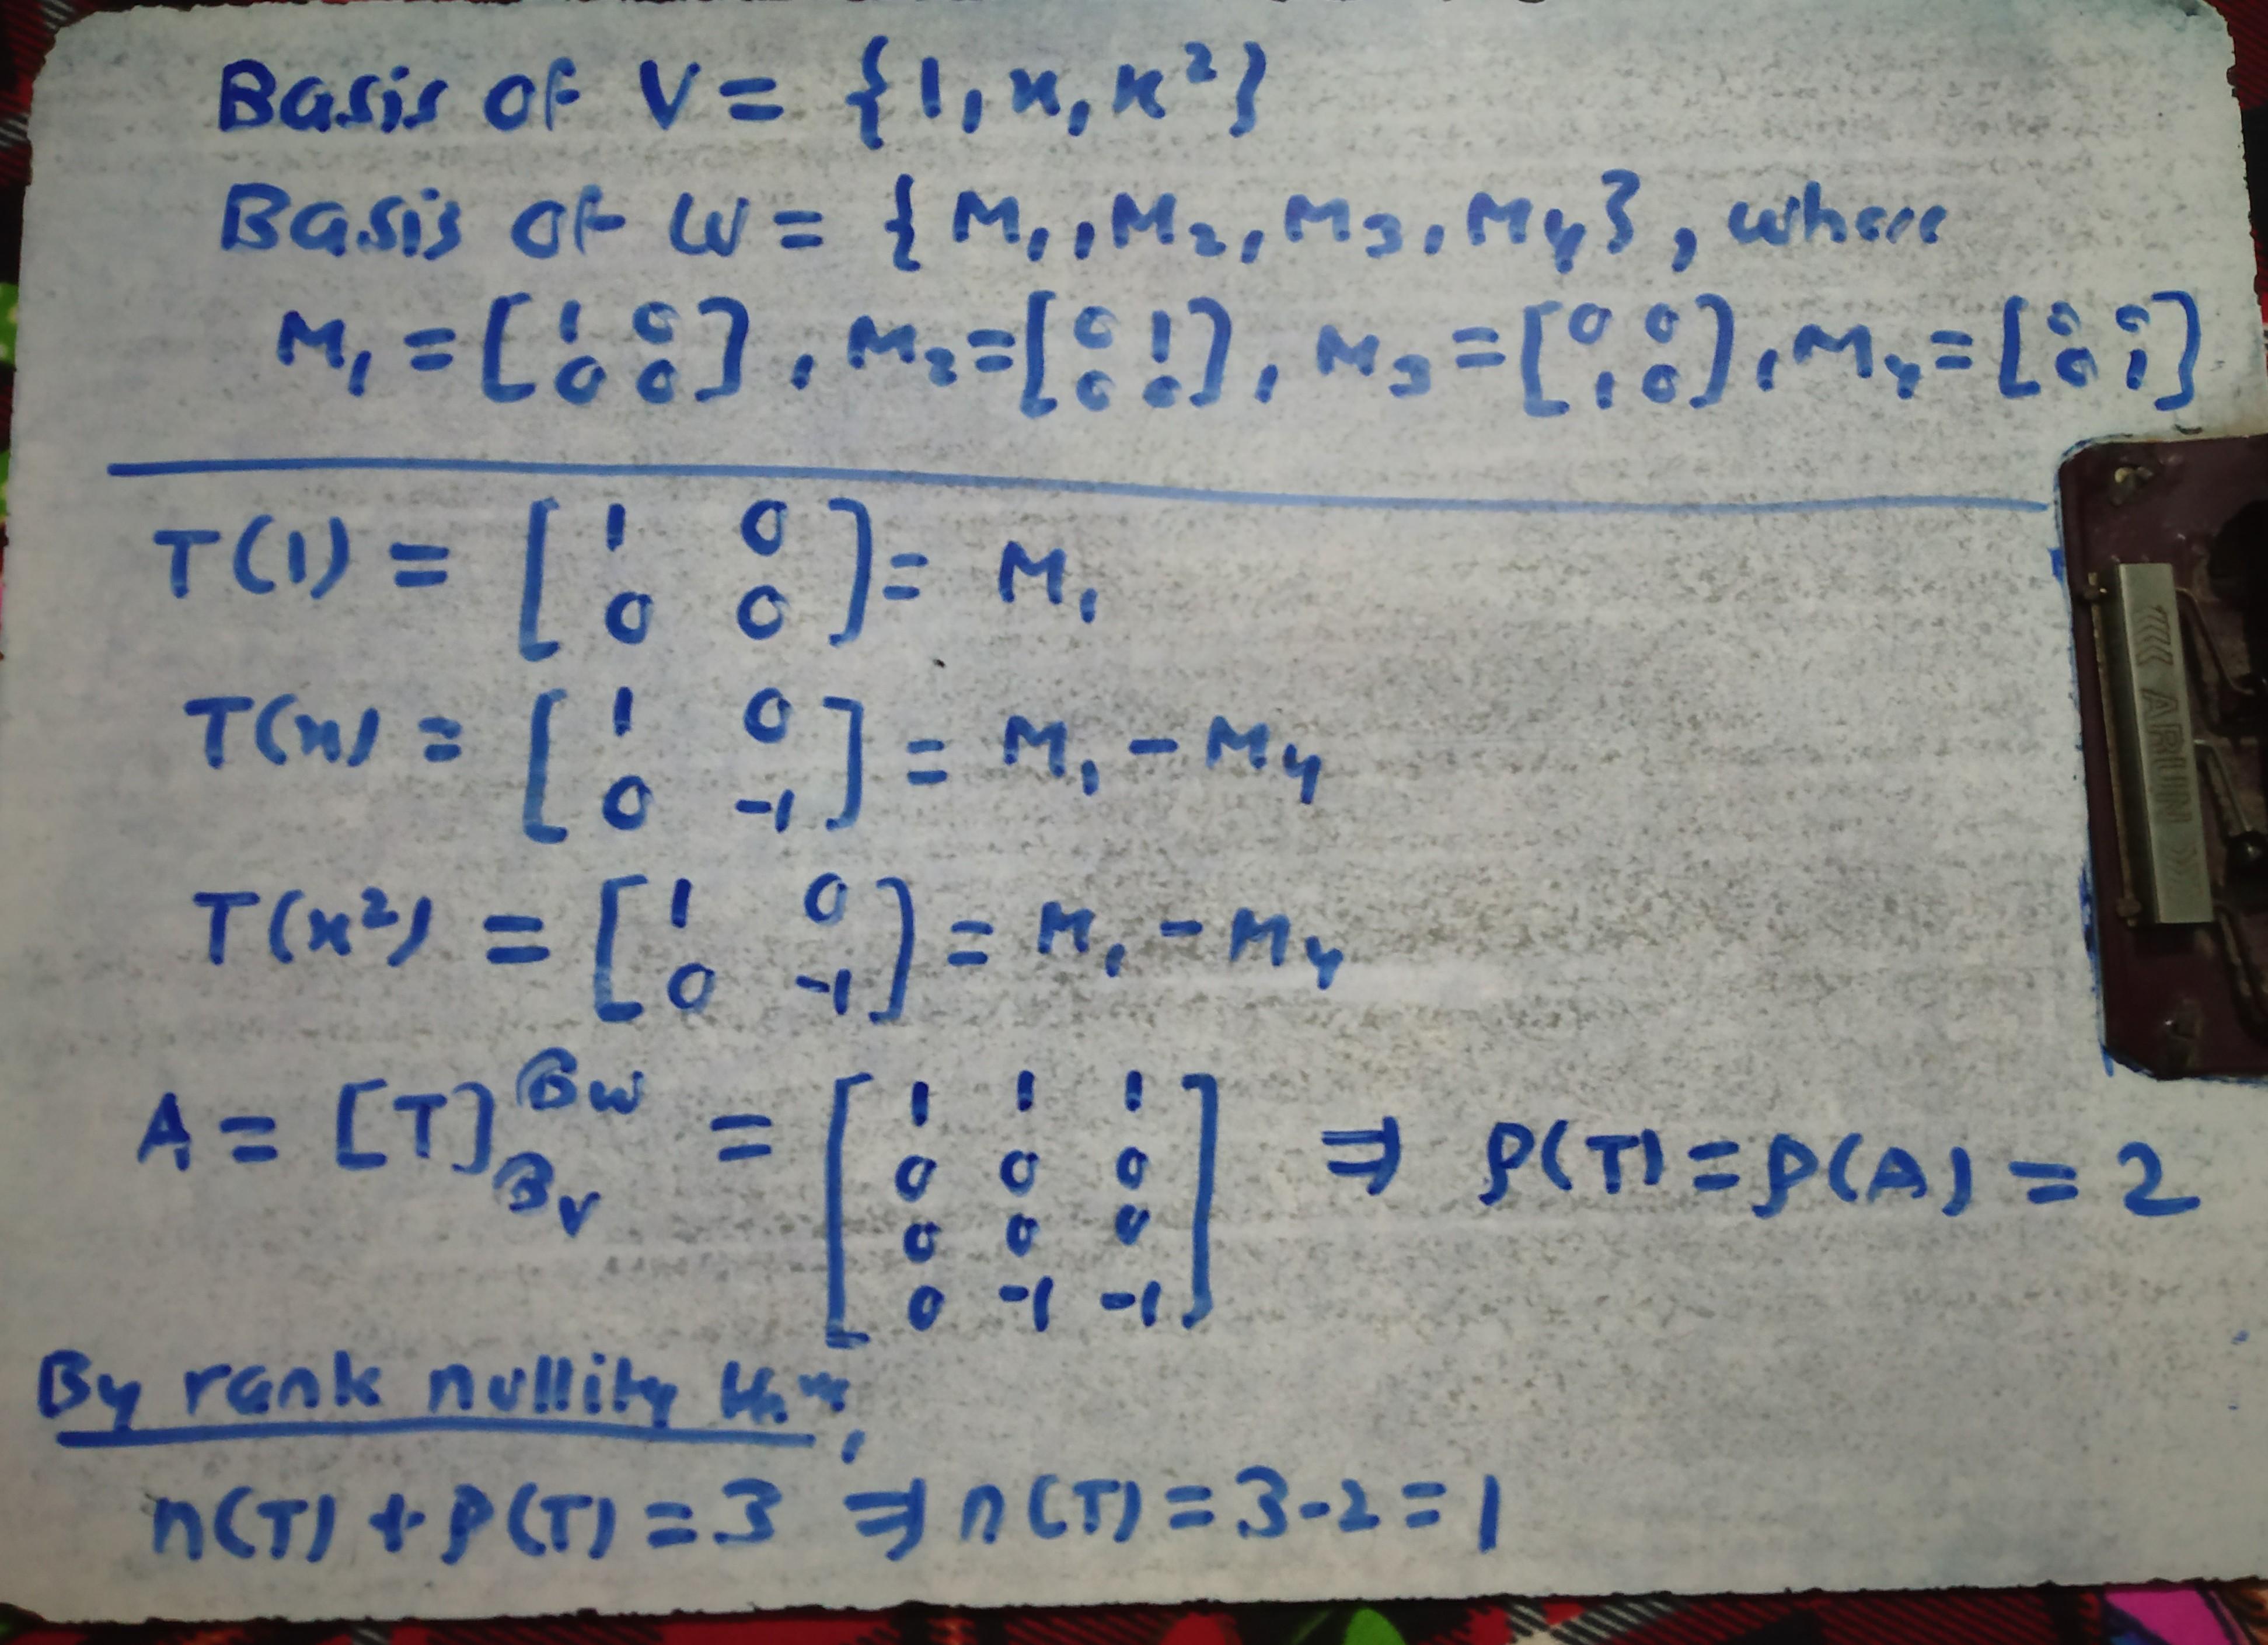 Basis of V = {1, x, x²}
Basis of W = {M₁, M₂, M₃, M₄}, where
M₁ = [1 0; 0 0], M₂ = [0 1; 0 0], M₃ = [0 0; 1 0], M₄ = [0 0; 0 1]
T(1) = [1 0; 0 0] = M₁
T(x) = [1 0; 0 -1] = M₁ - M₄
T(x²) = [1 0; 0 -1] = M₁ - M₄
A = [T]_{B_V}^{B_W} = [1 1 1; 0 0 0; 0 0 0; 0 -1 -1] ⇒ ρ(T) = ρ(A) = 2
By rank nullity thᵐ,
n(T) + ρ(T) = 3 ⇒ n(T) = 3-2 = 1
ARUN